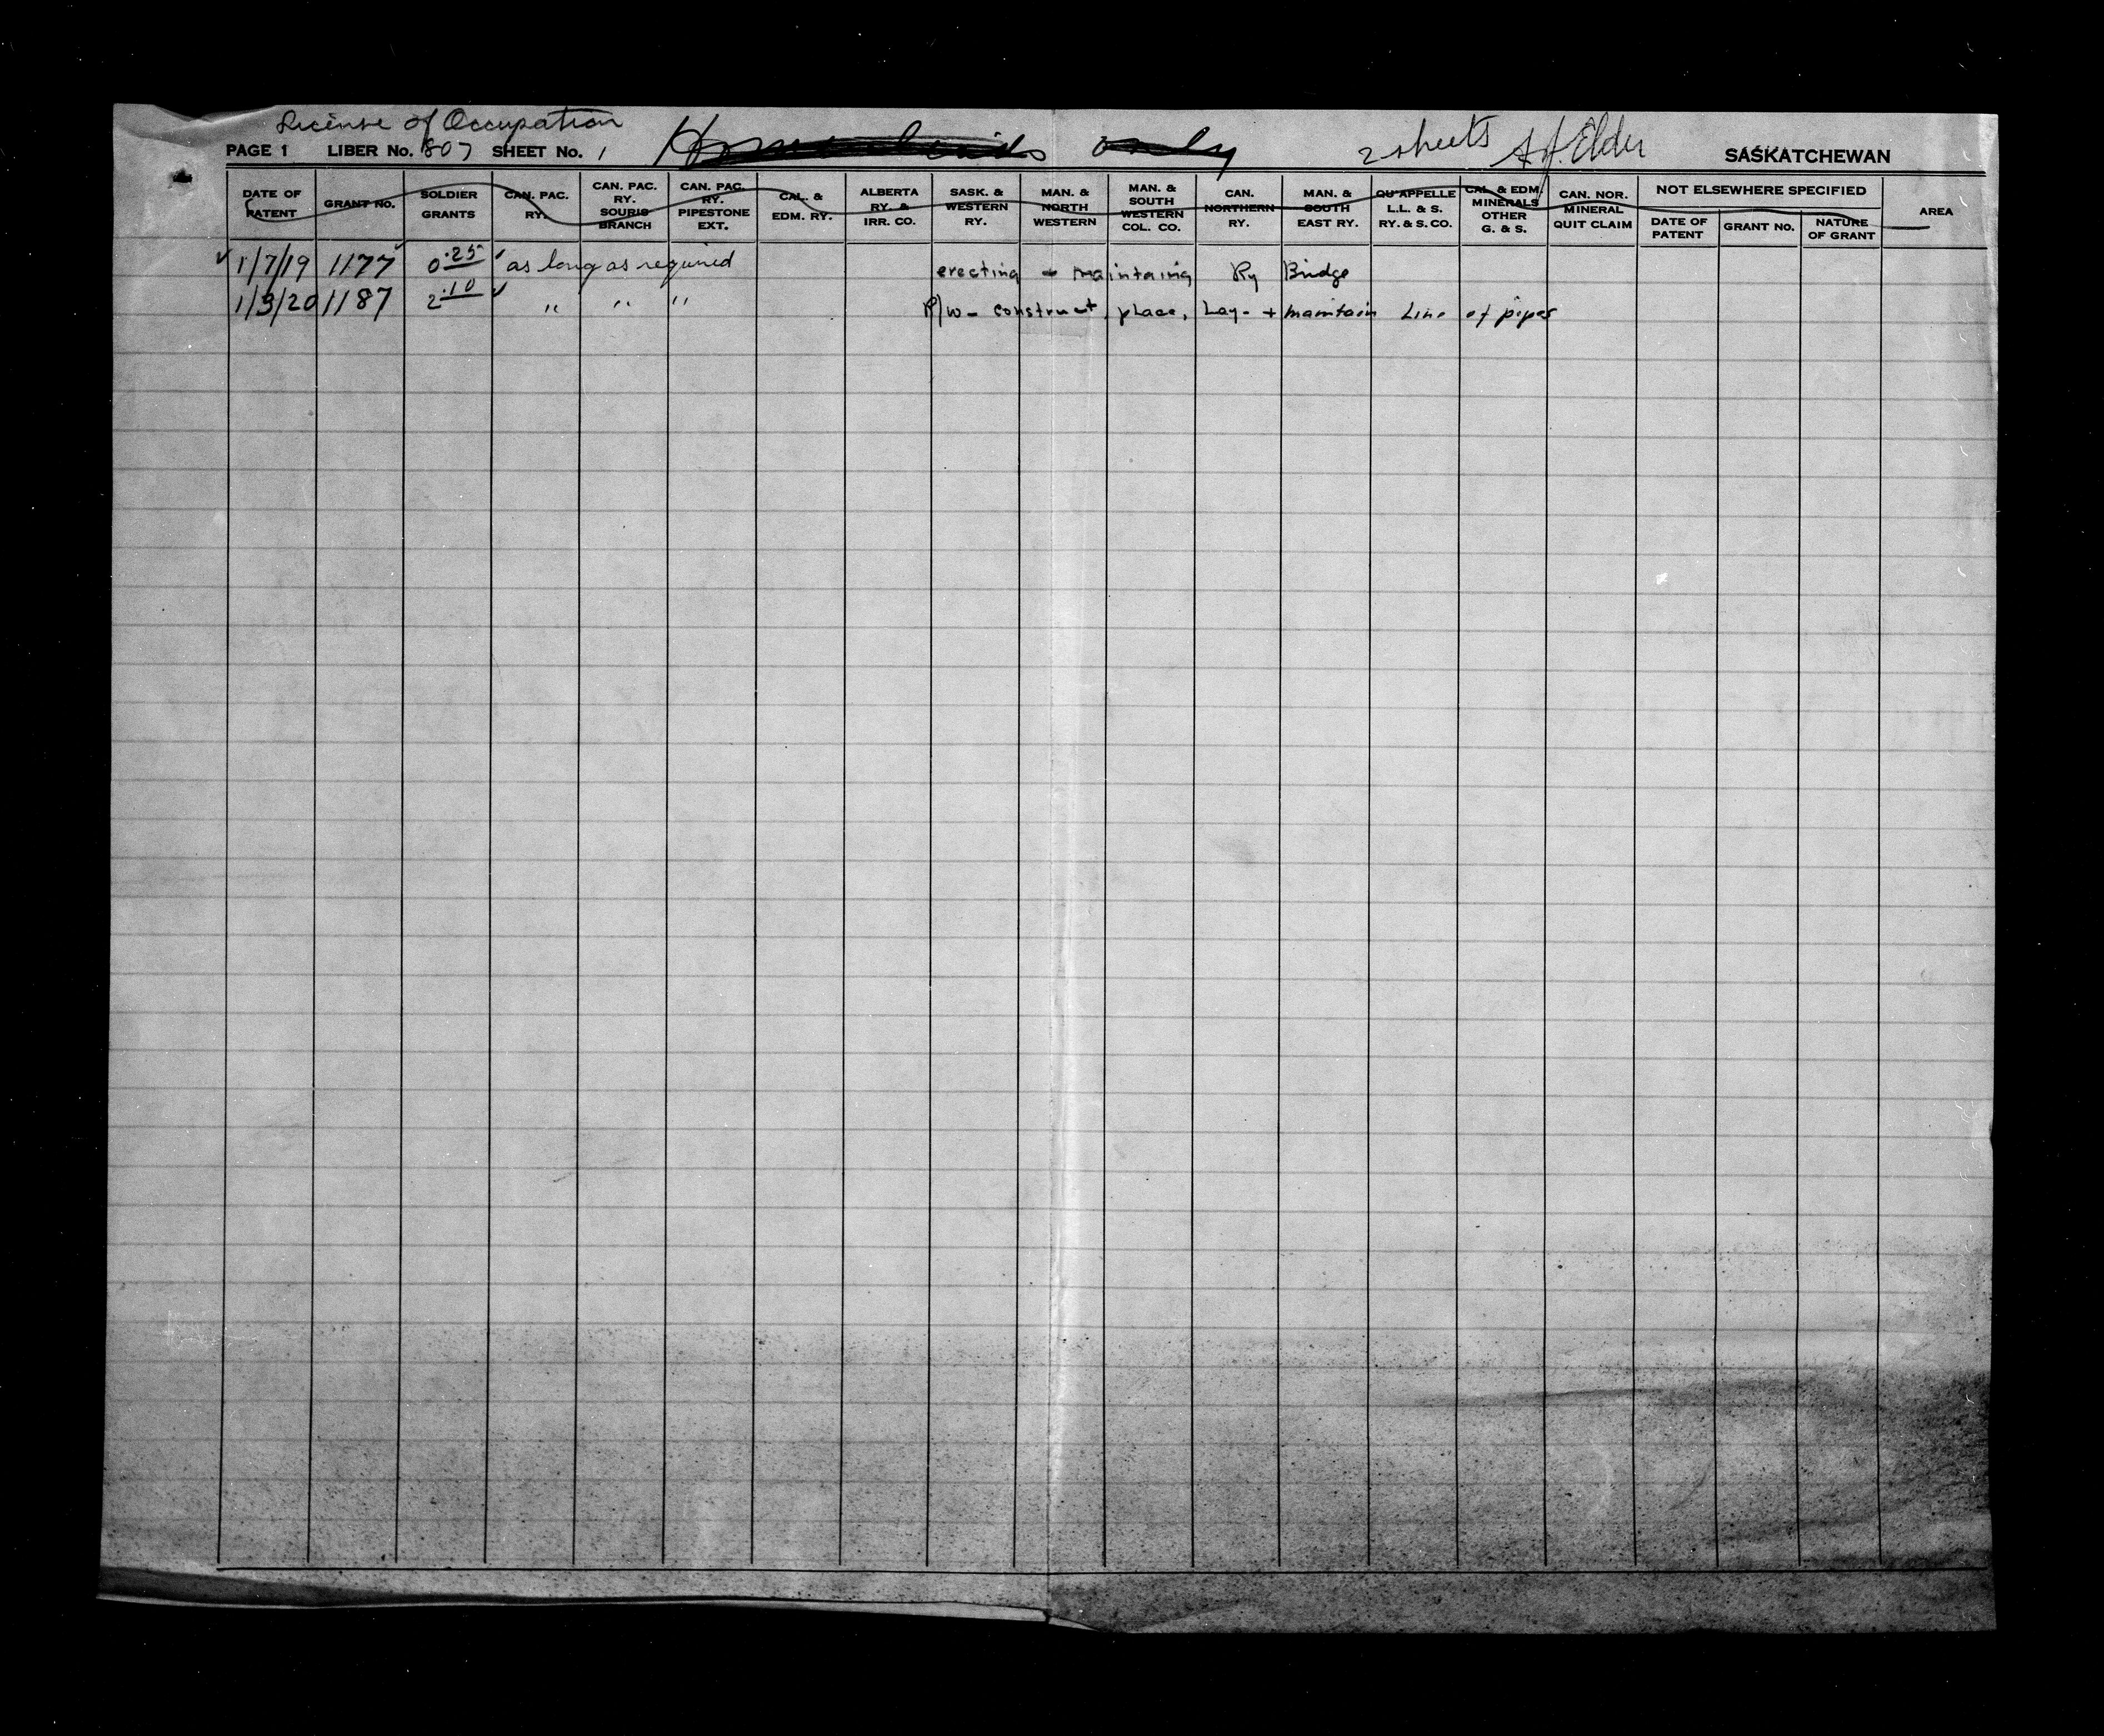 License of Occupation
PAGE 1 LIBER No. 807 SHEET No. 1 Homesteads only 2 sheets A.J. Elder SASKATCHEWAN
DATE OF PATENT
GRANT NO.
SOLDIER GRANTS
CAN. PAC. RY.
CAN. PAC. RY. SOURIS BRANCH
CAN. PAC. RY. PIPESTONE EXT.
CAL. & EDM. RY.
ALBERTA RY. & IRR. CO.
SASK. & WESTERN RY.
MAN. & NORTH WESTERN
MAN. & SOUTH WESTERN COL. CO.
CAN. NORTHERN RY.
MAN. & SOUTH EAST RY.
QU'APPELLE L.L. & S. RY. & S. CO.
CAL. & EDM. MINERALS OTHER G. & S.
CAN. NOR. MINERAL QUIT CLAIM
NOT ELSEWHERE SPECIFIED
DATE OF PATENT
GRANT NO.
NATURE OF GRANT
AREA
✓ 1/7/19 1177 ✓ 0.25 ✓ as long as required erecting + maintaing Ry Bridge
1/3/20 1187 2.10 ✓ " " " R/w - construct, place, Lay - + maintain Line of pipes